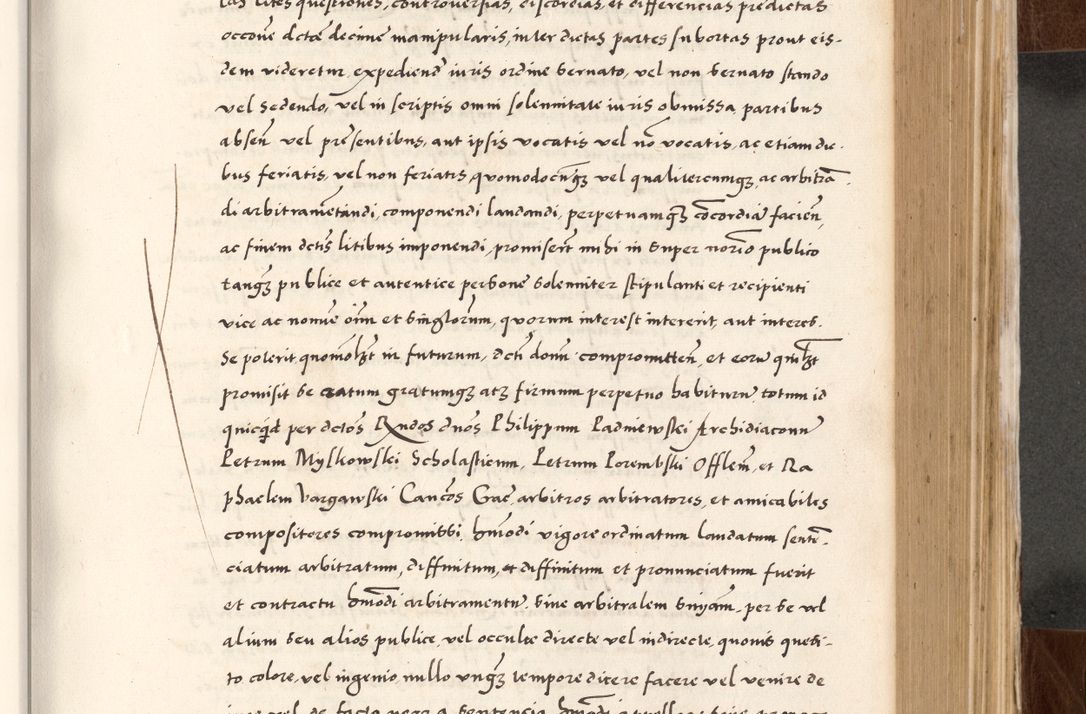 las lites questiones, controversias, discordias, et differencias predictas
occone dctae decime manipularis, inter dictas partes subortas prout eis-
dem videretur, expediend iuris ordine servato, vel non servato stando
vel sedendo, vel in scriptis omni solennitate iuris obmissa partibus
absen vel presentibus, aut ipsis vocatis vel no vocatis, ac etiam die-
bus feriatis, vel non feriatis, quomodocunqz vel qualitercumqz, ac arbitra-
di arbitrametandi, componendi laudandi, perpetuamqz cocordia facien,
ac finem dctis litibus imponendi, promisert mihi in super norio publico
tanqz publice et autentice persone solenniter stipulanti et recipienti
vice ac nomine oim et singlorum, quorum interest intererit, aut interes-
se poterit quomolzt in futurum, dcti domi compromitten, et eoru quilzt
promisit se ratum gratumqz atqz firmum perpetuo habiturum, totum id
quicqd per dctos Rndos dnos Philippum Padniewski Archidiaconu
Petrum Myskowski Scholasticum, Petrum Porembski Offlem, et Ra
phaelem Vargawski Cancos Grac arbitros arbitratores, et amicabiles
compositores compromissi hmodi vigore ordinatum laudatum senten-
ciatum arbitratum, diffinitum, et diffinitum et pronunciatum fuerit
et contractu hmodi arbitramentu, sive arbitralem sniam, per se vel
alium seu alios publice, vel occulte directe vel indirecte, quovis quesi-
to colore, vel ingenio, nullo unqz tempore dicere facere vel venire de
iure vel de facto nec a sententia hmodi